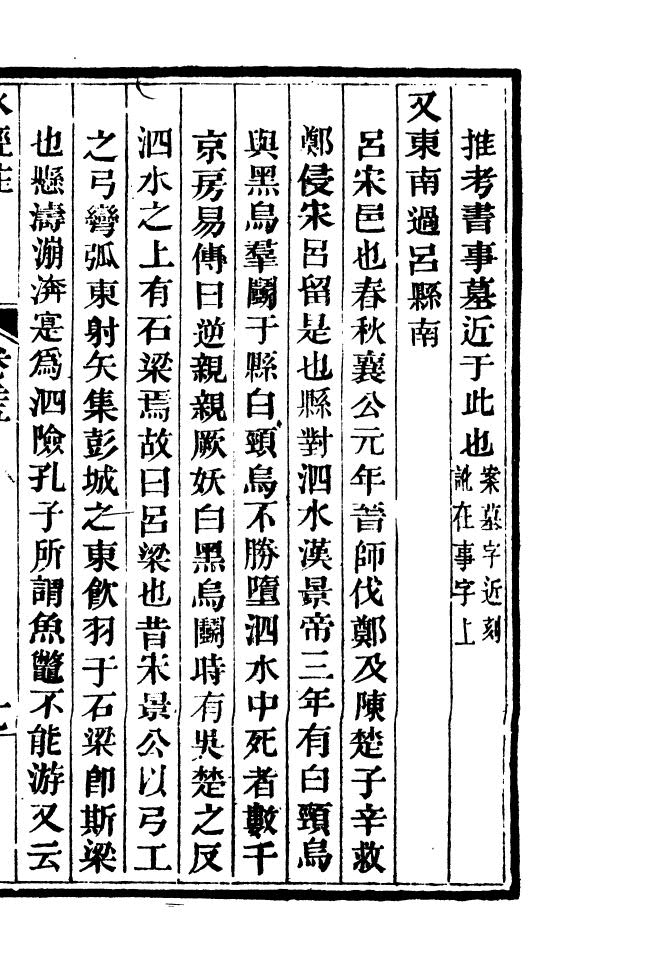 推考書事墓近于此也案墓字近刻訛在事字上
又東南過呂縣南
呂宋邑也春秋襄公元年晉師伐鄭及陳楚子辛救
鄭侵宋呂留是也縣對泗水漢景帝三年有白頸烏
與黑烏羣鬭于縣白頸烏不勝墮泗水中死者數千
京房易傳曰逆親親厥妖白黑烏鬭時有吳楚之反
泗水之上有石梁焉故曰呂梁也昔宋景公以弓工
之弓彎弧東射矢集彭城之東飲羽于石梁卽斯梁
也懸濤漰渀寔爲泗險孔子所謂魚鼈不能游又云
水經注